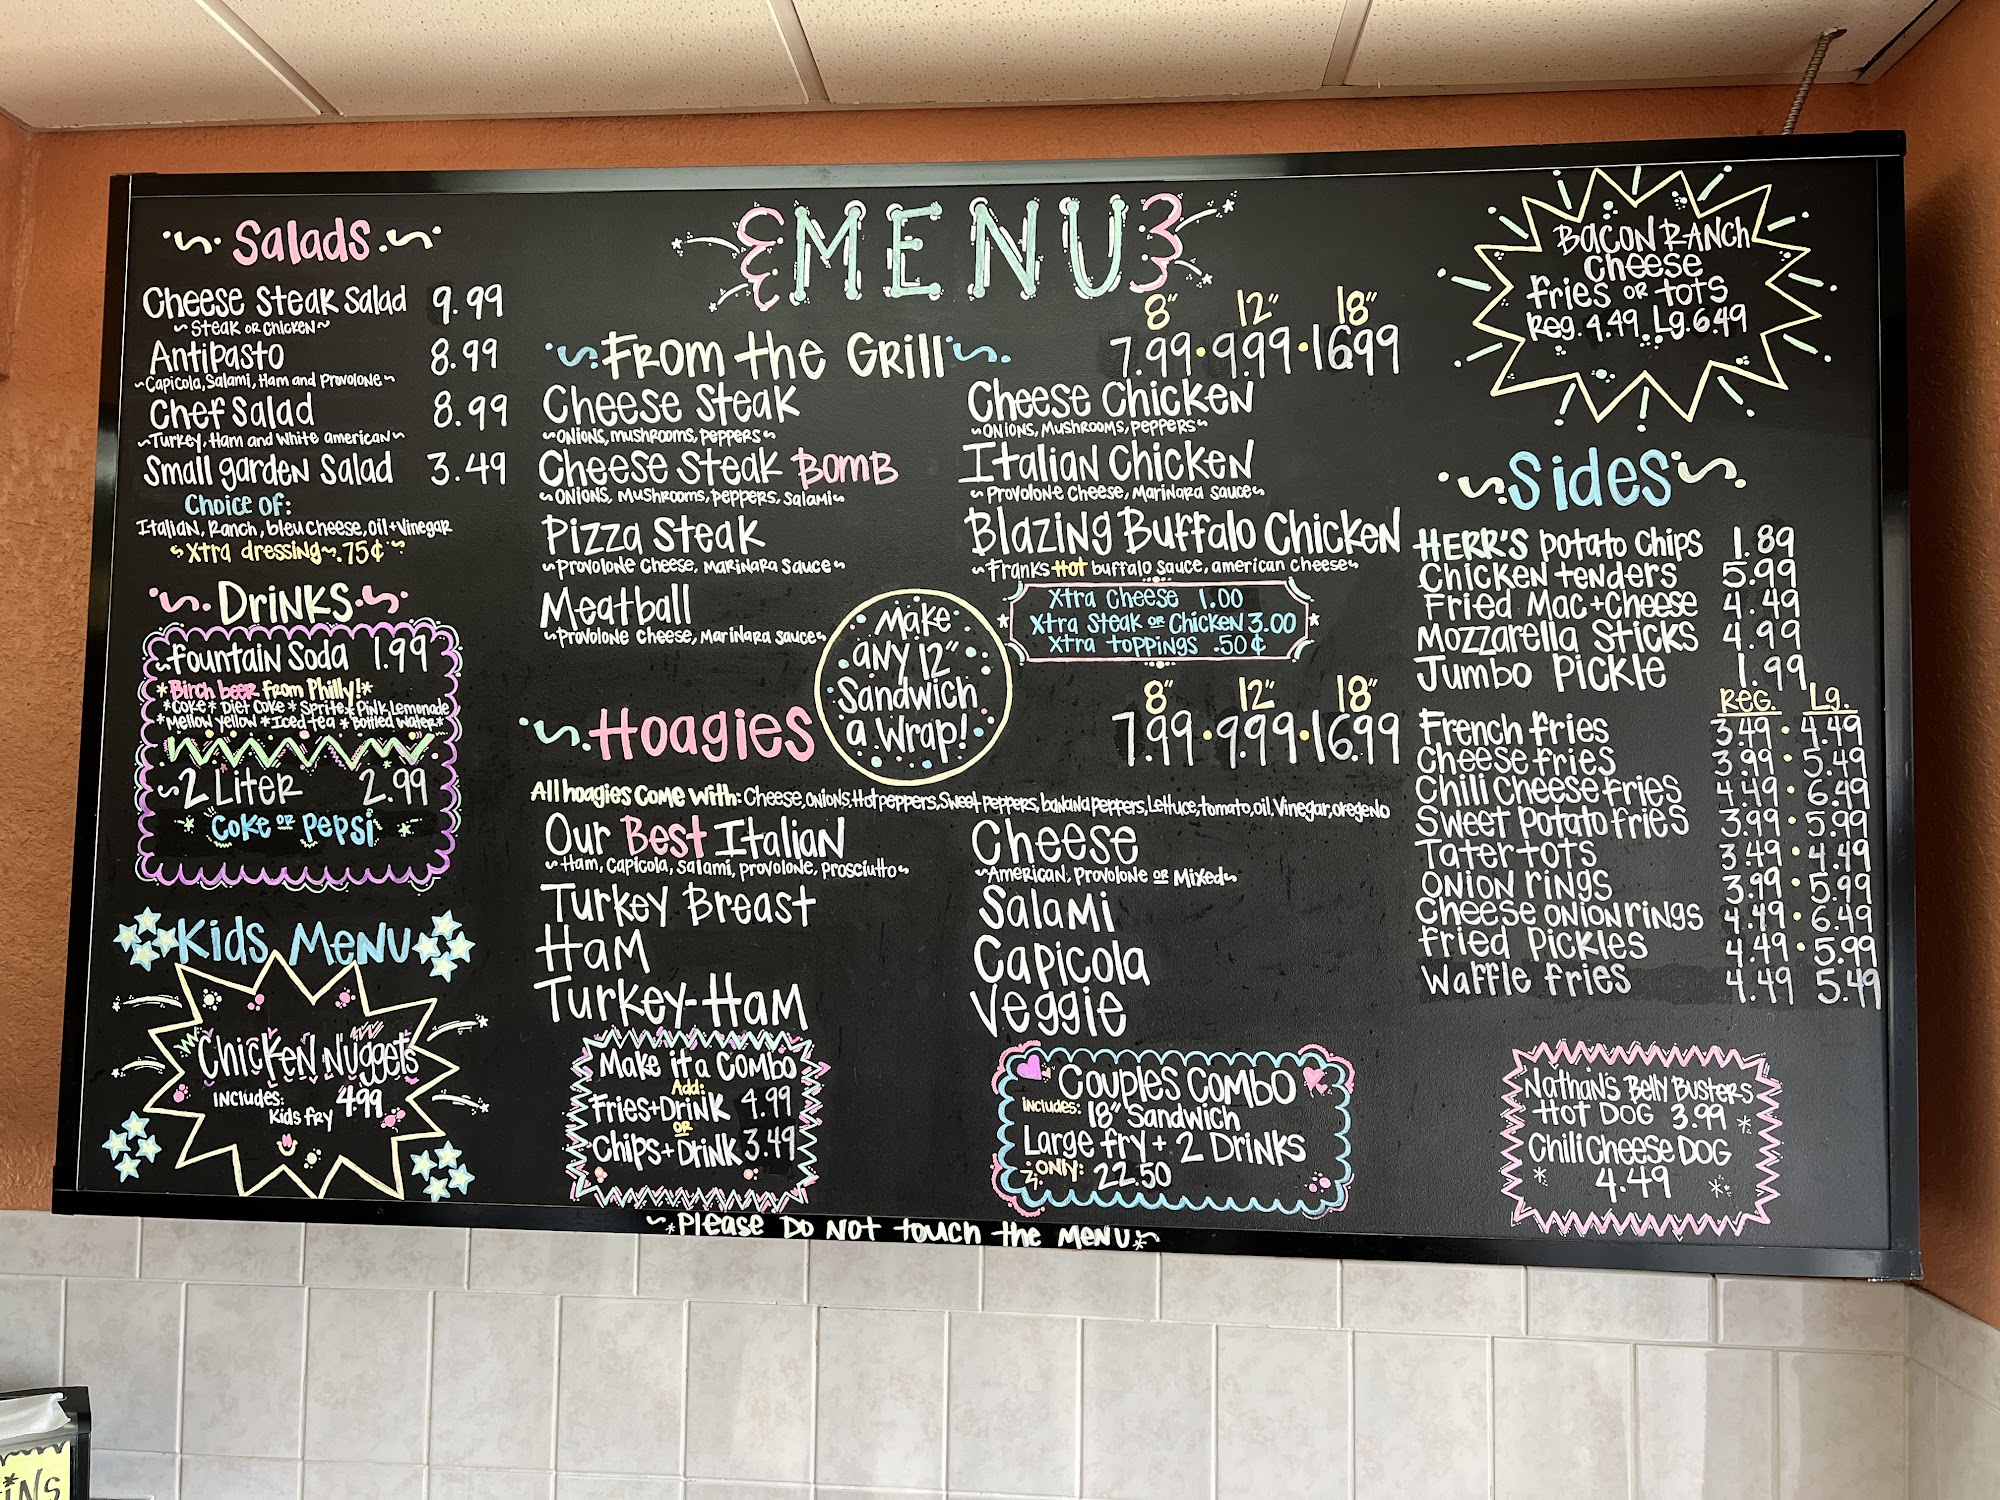 MENU
Salads
Cheese Steak Salad 9.99
~Steak or Chicken~
Antipasto 8.99
~Capicola, Salami, Ham and Provolone~
Chef Salad 8.99
~Turkey, Ham and White american~
Small garden Salad 3.49
Choice of:
Italian, Ranch, bleu cheese, oil+Vinegar
~Xtra dressing~.75¢~
Drinks
fountain Soda 1.99
*Birch beer from Philly!*
*Coke* Diet Coke * Sprite* Pink Lemonade
*Mellow Yellow *Iced tea *Bottled Water*
~2 Liter 2.99
Coke or Pepsi
Kids Menu
Chicken Nuggets
includes: 4.99
Kids fry
From the Grill
8" 12" 18"
7.99•9.99•16.99
Cheese Steak
~Onions, mushrooms, peppers~
Cheese Steak BOMB
~Onions, Mushrooms, peppers, Salami~
Pizza Steak
~Provolone Cheese, Marinara Sauce~
Meatball
~Provolone Cheese, Marinara Sauce~
Cheese Chicken
~Onions, Mushrooms, peppers~
Italian Chicken
~Provolone Cheese, Marinara Sauce~
Blazing Buffalo Chicken
~Franks Hot buffalo Sauce, american cheese~
Xtra Cheese 1.00
Xtra Steak or Chicken 3.00
Xtra toppings .50¢
Make
any 12"
Sandwich
a Wrap!
Hoagies
8" 12" 18"
7.99•9.99•16.99
All hoagies Come With: Cheese, onions, Hot peppers, Sweet peppers, banana peppers, Lettuce, tomato, oil, Vinegar, oregeno
Our Best Italian
~Ham, Capicola, Salami, provolone, Prosciutto~
Turkey Breast
Ham
Turkey-Ham
Cheese
~American, Provolone or Mixed~
Salami
Capicola
Veggie
Make it a Combo
Add:
Fries+Drink 4.99
or
Chips+Drink 3.49
Couples Combo
includes: 18" Sandwich
Large fry + 2 Drinks
only: 22.50
Bacon Ranch
Cheese
fries or tots
Reg. 4.49 Lg. 6.49
Sides
HERR'S potato Chips 1.89
Chicken tenders 5.99
Fried Mac+Cheese 4.49
Mozzarella Sticks 4.99
Jumbo Pickle 1.99
Reg. Lg.
French fries 3.49 • 4.49
Cheese fries 3.99 • 5.49
Chili Cheese fries 4.49 • 6.49
Sweet Potato fries 3.99 • 5.99
Tater tots 3.49 • 4.49
Onion rings 3.99 • 5.99
Cheese onion rings 4.49 • 6.49
fried Pickles 4.49 • 5.99
Waffle fries 4.49 5.49
Nathan's Belly Busters
Hot Dog 3.99
Chili Cheese Dog
4.49
~*Please Do Not touch the Menu*~